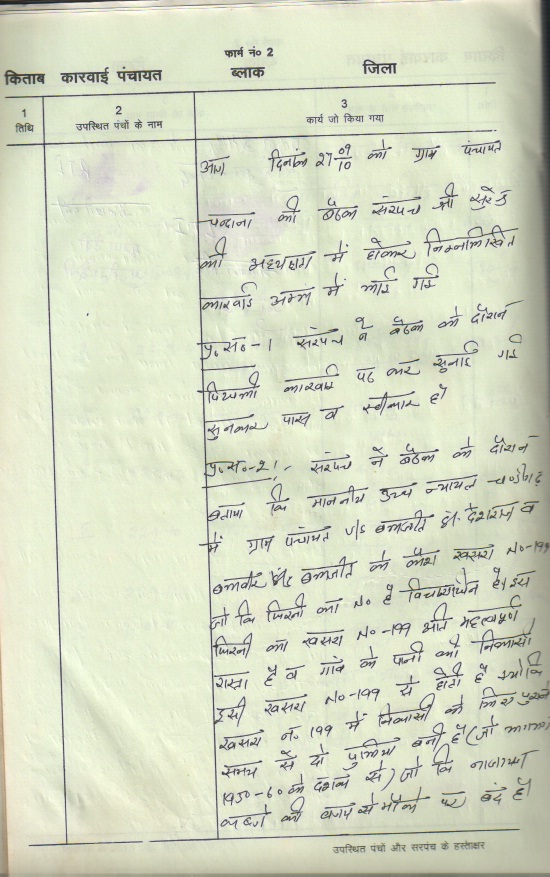 फार्म नं० 2
किताब कारवाई पंचायत ब्लाक जिला
1 2 3
तिथि उपस्थित पंचों के नाम कार्य जो किया गया
आज दिनांक 27 09/10 को ग्राम पंचायत
की बैठक सरंपच श्री
की अध्यक्षता में होकर निम्नलिखित
कारवाई अमल में लाई गई
प्र.स०-1 सरंपच ने बैठक के दौरान
पिछली कारवाई पढ कर सुनाई गई
सुनकर पास व स्वीकार है
प्र.स०-2:- सरंपच ने बैठक के दौरान
बताया कि माननीय उच्च न्यायलय चण्डीगढ़
में ग्राम पंचायत V/S बलजीत S/o देशराज व
बलजीत के केश खसरा No-199
जो कि फिरनी का No है विचाराधीन है। इस
फिरनी का खसरा No-199 अति महत्वपूर्ण
रास्ता है व गांव के पानी की निकासी
इसी खसरा No-199 से होती है क्योंकि
खसरा न. 199 में निकासी के लिए पुराने
समय से दो पुलिया बनी है (जो लगभग
1950-60 के दशक से) जो कि नाजायज
कब्जे की वजय से मौके पर बंद है।
उपस्थित पंचों और सरपंच के हस्ताक्षर